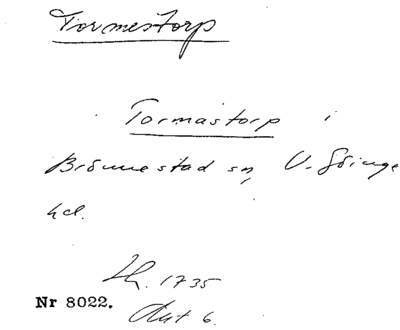 Tormestorp
Tormastorp i
Brönnestad sn, V. Göinge
hd.
Th. 1735
Nr 8022.
Avt 6.